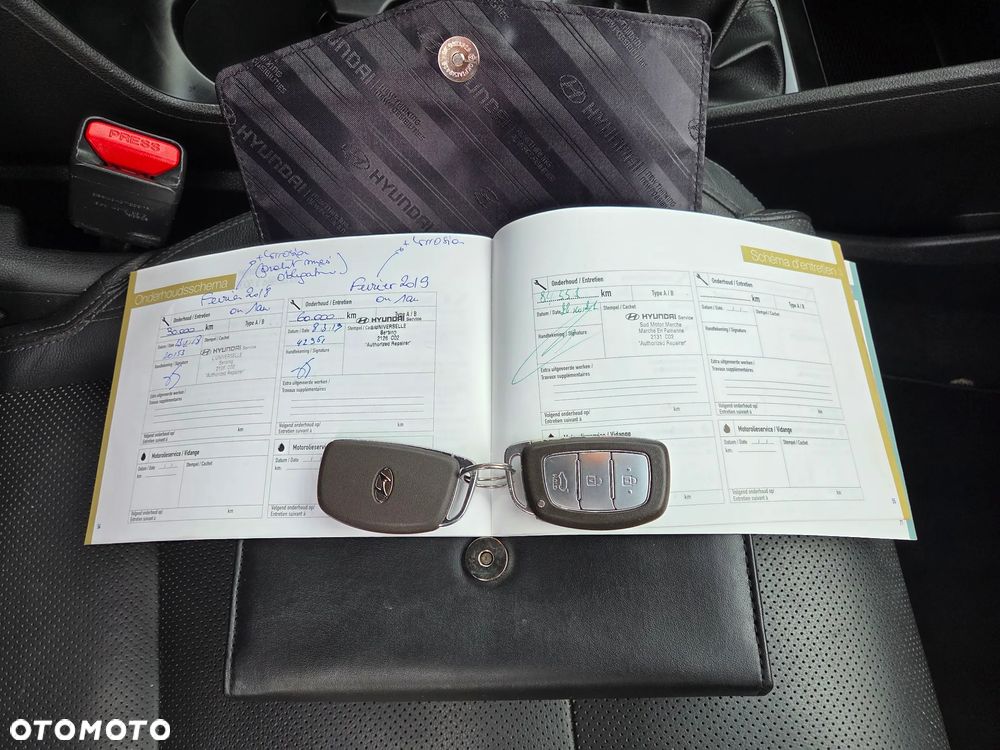 HYUNDAI
HYUNDAI
HYUNDAI
HYUNDAI
NEW THINKING
PRESS
Onderhoudsschema
Février 2018
ou 1 an
Onderhoud / Entretien
30.000 km
Type A / B
Datum / Date
Stempel / Cachet
HYUNDAI Service
L'UNIVERSELLE
Bersing
2126 C02
"Authorized Repairer"
Handtekening / Signature
Extra uitgevoerde werken /
Travaux supplémentaires
Volgend onderhoud op/
Entretien suivant à
km
+ Corrosion
Février 2019
ou 1 an
Onderhoud / Entretien
60.000 km
Type A / B
Datum / Date 8.3.19
Stempel / Cachet
HYUNDAI Service
L'UNIVERSELLE
Bersing
2126 C02
"Authorized Repairer"
Handtekening / Signature
Extra uitgevoerde werken /
Travaux supplémentaires
Volgend onderhoud op/
Entretien suivant à
km
Motorolieservice / Vidange
Datum / Date
Stempel / Cachet
km:
Volgend onderhoud op/
Entretien suivant à
km
Motorolieservice
Datum / Date
km:
Volgend onderhoud op/
Entretien suivant à
Schéma d'entretien
Onderhoud / Entretien
km
Type A / B
Datum / Date
Stempel / Cachet
HYUNDAI Service
Sud Motor Marche
Marche En Famenne
2131 C02
"Authorized Repairer"
Handtekening / Signature
Extra uitgevoerde werken /
Travaux supplémentaires
Volgend onderhoud op/
Entretien suivant à
km
Onderhoud / Entretien
km
Type A / B
Datum / Date
Stempel / Cachet
Handtekening / Signature
Extra uitgevoerde werken /
Travaux supplémentaires
Volgend onderhoud op/
Entretien suivant à
km
Motorolieservice / Vidange
km
Motorolieservice / Vidange
Datum / Date
Stempel / Cachet
km:
Volgend onderhoud op/
Entretien suivant à
km
OTOMOTO